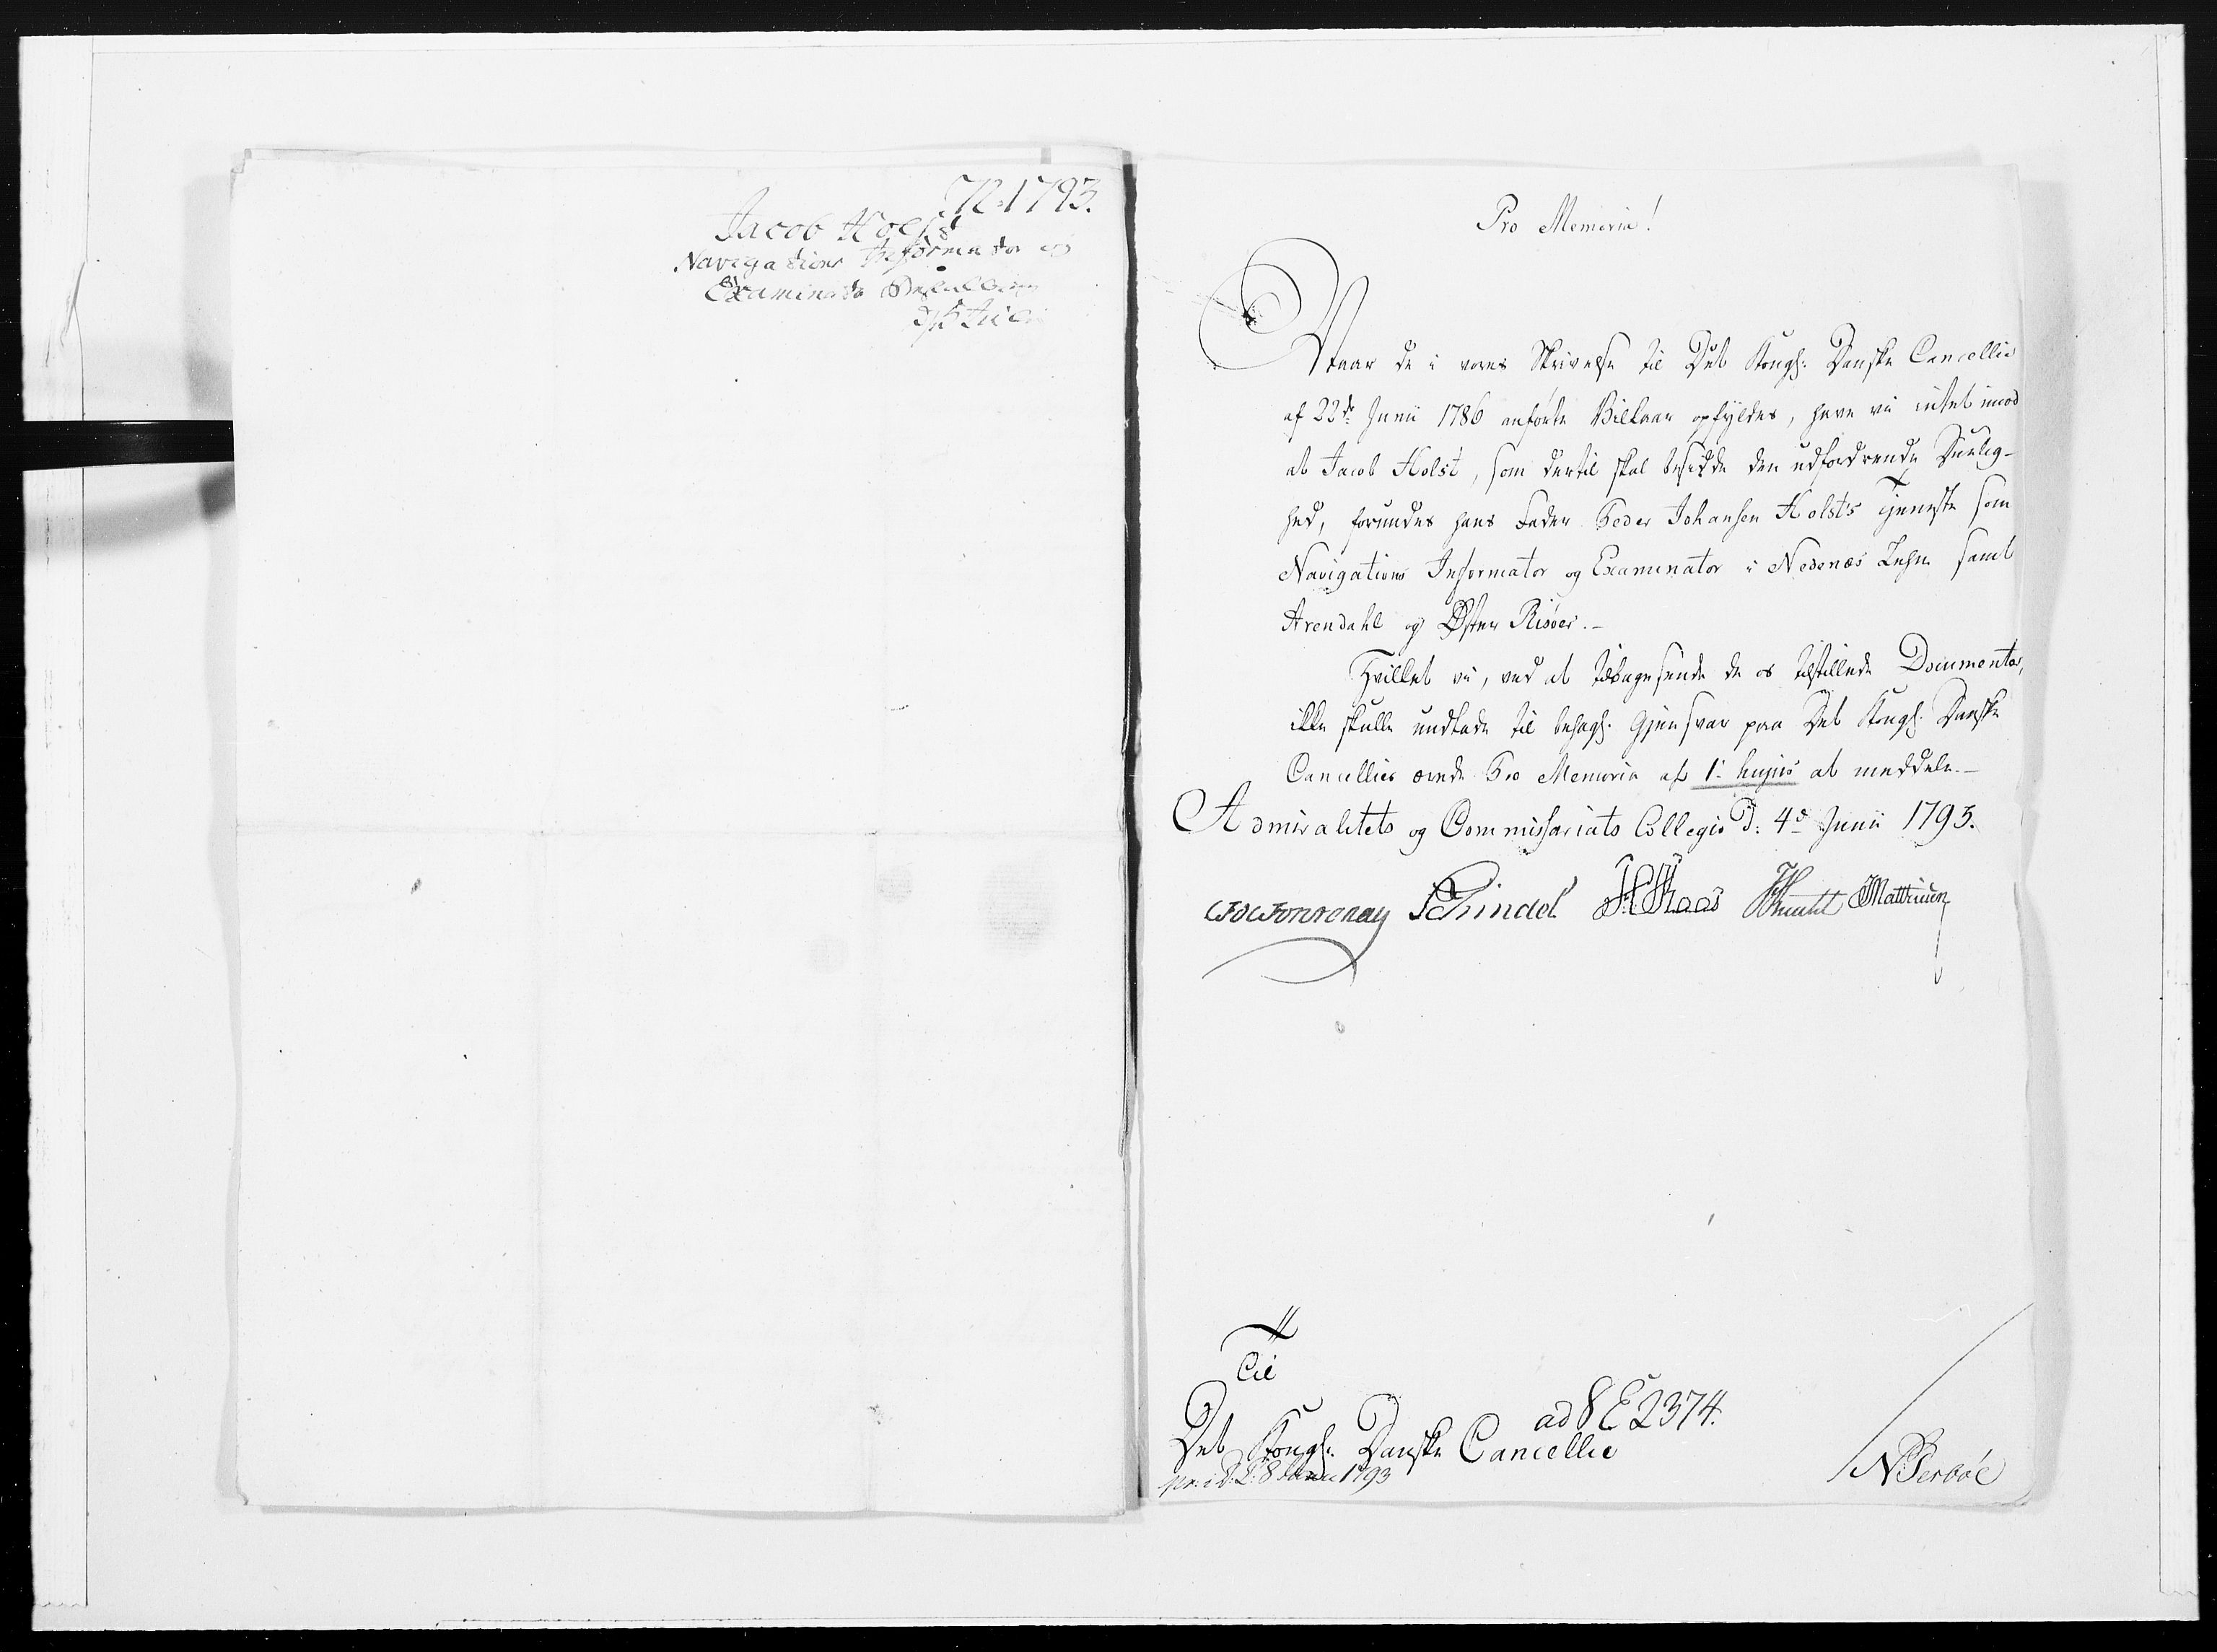 N. 1793.
Jacob Holst
Navigations Informator og
Examinator Bestalling
d. 5 Julii
Pro Memoria!
Naar de i vores Skrivelse til Det Kongl: Danske Cancellie
af 22de Junii 1786 anførte Vilkaar opfyldes, have vii intet imod
at Jacob Holst, som dertil skal besidde den udfordrende Duelig-
hed, forundes hans Fader Peder Johansen Holst's Tjeneste som
Navigations Informator og Examinator i Nedenæs Lehn samt
Arendahl og Øster Riisøer.-
Hvilket vii, ved at tilbagesende de os tilstillede Documenter,
ikke skulle undlade til behagl: Gjensvar paa Det Kongl: Danske
Cancellies ærede Pro Memoria af 1: hujus at meddele.-
Admiralitets og Commissariats Collegio D: 4d Junii 1793.
Fontenay Schindel FCKaas Knuth Matthiesen
Til
ad 8 E 2374.
Det Kongl: Danske Cancellie
pr: i D: C: 8 Junii 1793
NSerbøl